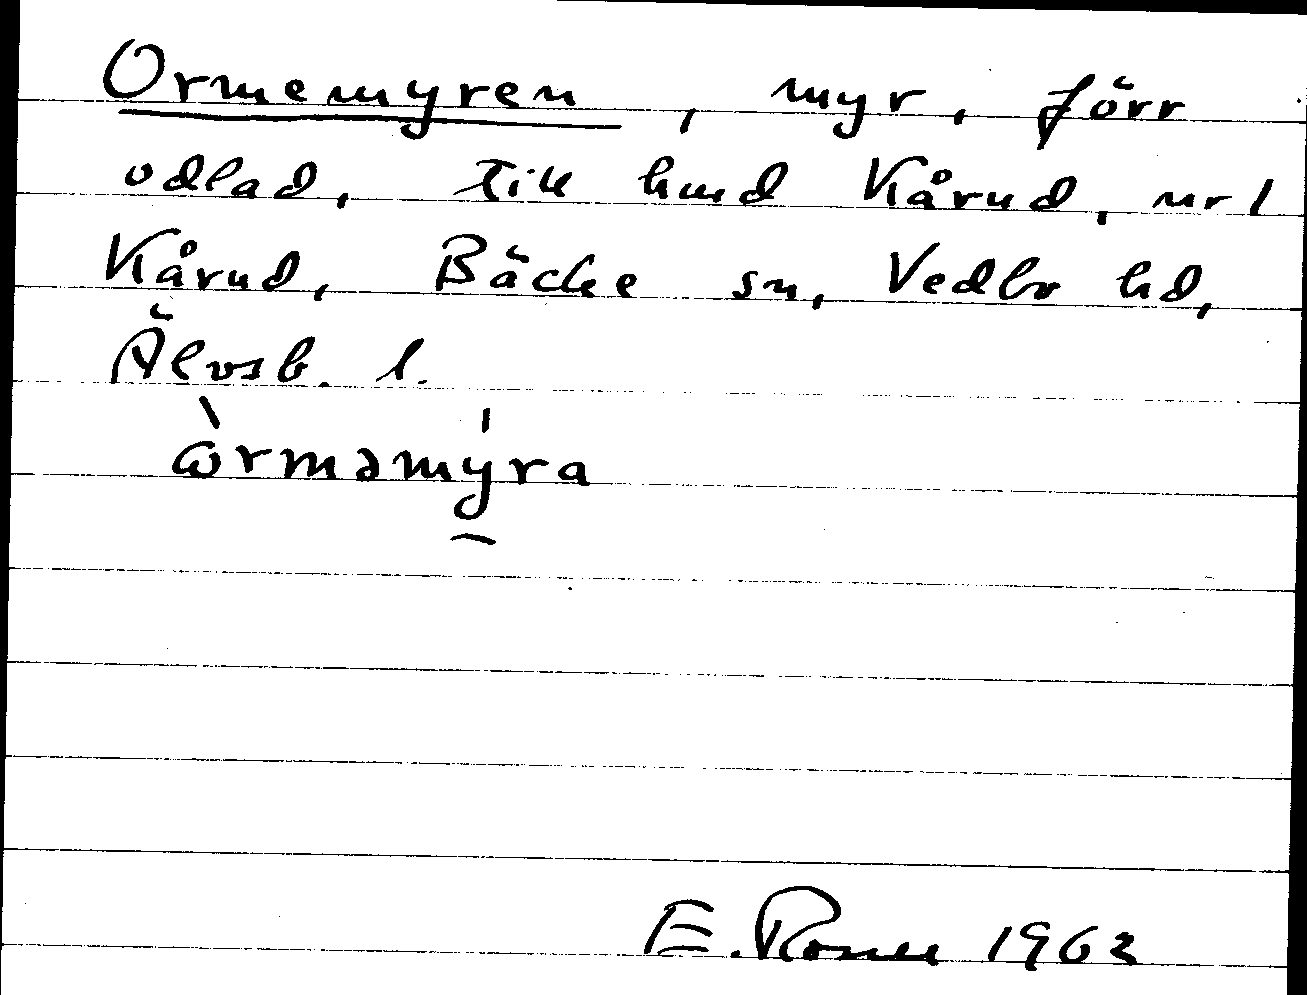 Ormemyren, myr, förr
odlad, till hmd Kårud, nr 1
Kårud, Bäcke sn, Vedbo hd,
Älvsb. l.
ὼrməmýra
E. Rosner 1962